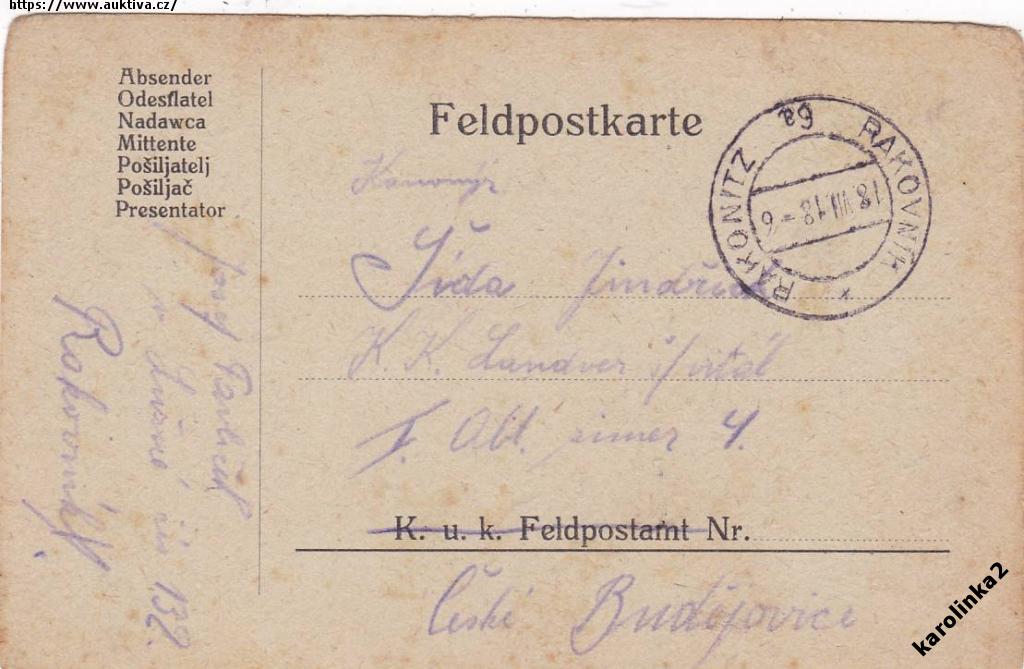 https://www.auktiva.cz/
Absender
Odesílatel
Nadawca
Mittente
Pošiljatelj
Pošiljač
Presentator
Feldpostkarte
RAKONITZ 6a RAKOVNÍK *
18.VII.18-6
Kanonýr
Šída Jindřich
K. K. Landver špitál
I. Abt. zimer 4.
K. u. k. Feldpostamt Nr.
České Budějovice
Josef
v Lužné čís 132.
Rakovník
karolinka2